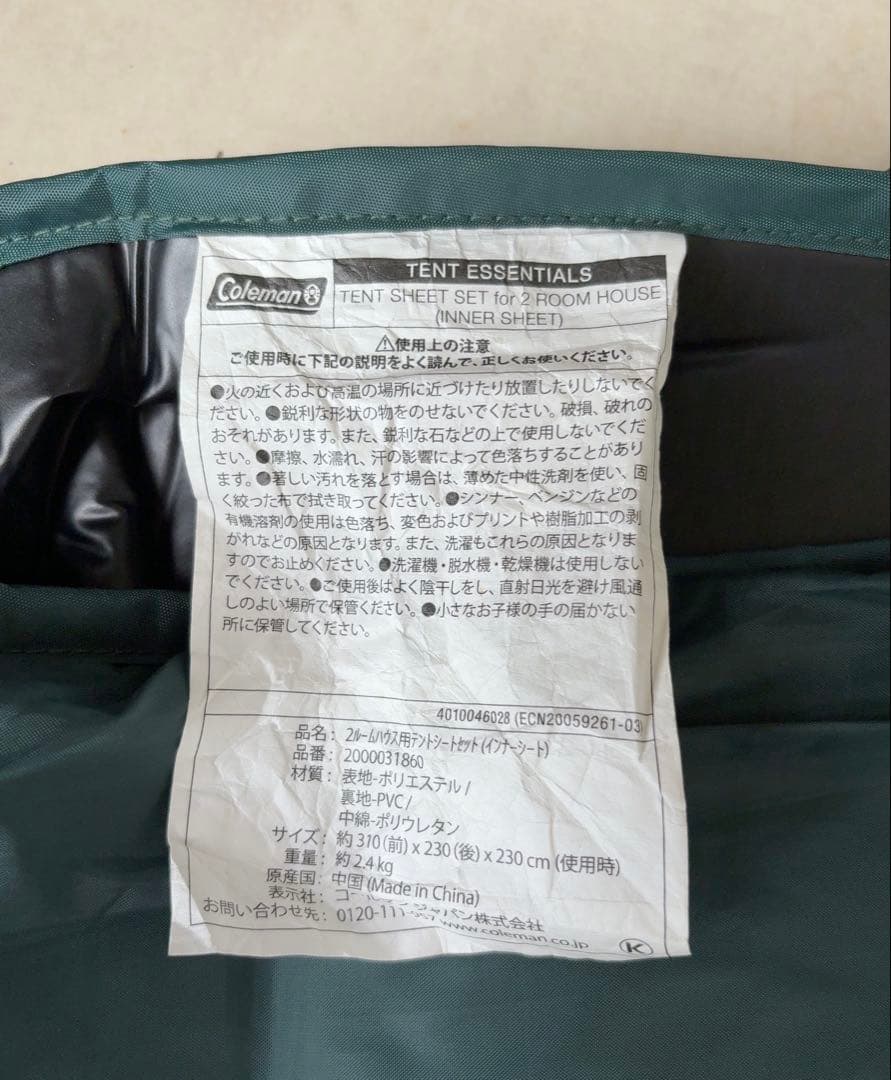 Coleman
TENT ESSENTIALS
TENT SHEET SET for 2 ROOM HOUSE
(INNER SHEET)
⚠使用上の注意
ご使用時に下記の説明をよく読んで、正しくお使いください。
●火の近くおよび高温の場所に近づけたり放置したりしないでく
ださい。●鋭利な形状の物をのせないでください。破損、破れの
おそれがあります。また、鋭利な石などの上で使用しないでくだ
さい。●摩擦、水濡れ、汗の影響によって色落ちすることがあり
ます。●著しい汚れを落とす場合は、薄めた中性洗剤を使い、固
く絞った布で拭き取ってください。●シンナー、ベンジンなどの
有機溶剤の使用は色落ち、変色およびプリントや樹脂加工の剥
がれなどの原因となります。また、洗濯もこれらの原因となりま
すのでお止めください。●洗濯機・脱水機・乾燥機は使用しない
でください。●ご使用後はよく陰干しをし、直射日光を避け風通
しのよい場所で保管ください。●小さなお子様の手の届かない
所に保管してください。
4010046028 (ECN20059261-03)
品名： 2ルームハウス用テントシートセット(インナーシート)
品番： 2000031860
材質： 表地-ポリエステル /
裏地-PVC /
中綿-ポリウレタン
サイズ： 約 310 (前) x 230 (後) x 230 cm (使用時)
重量： 約 2.4 kg
原産国： 中国 (Made in China)
表示社： コールマン ジャパン株式会社
お問い合わせ先： 0120-111-957 www.coleman.co.jp
K